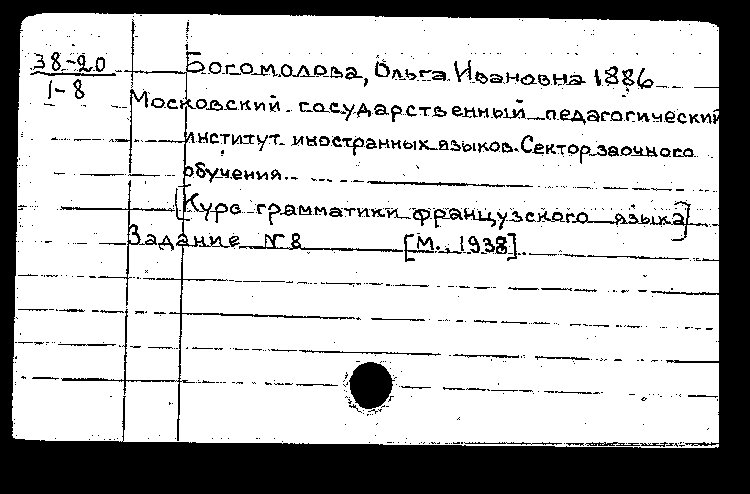 38-20
1-8
Богомолова, Ольга Ивановна 1886
Московский государственный педагогический
институт иностранных языков. Сектор заочного
обучения.
[Курс грамматики французского языка]
Задание № 8 [М., 1938].